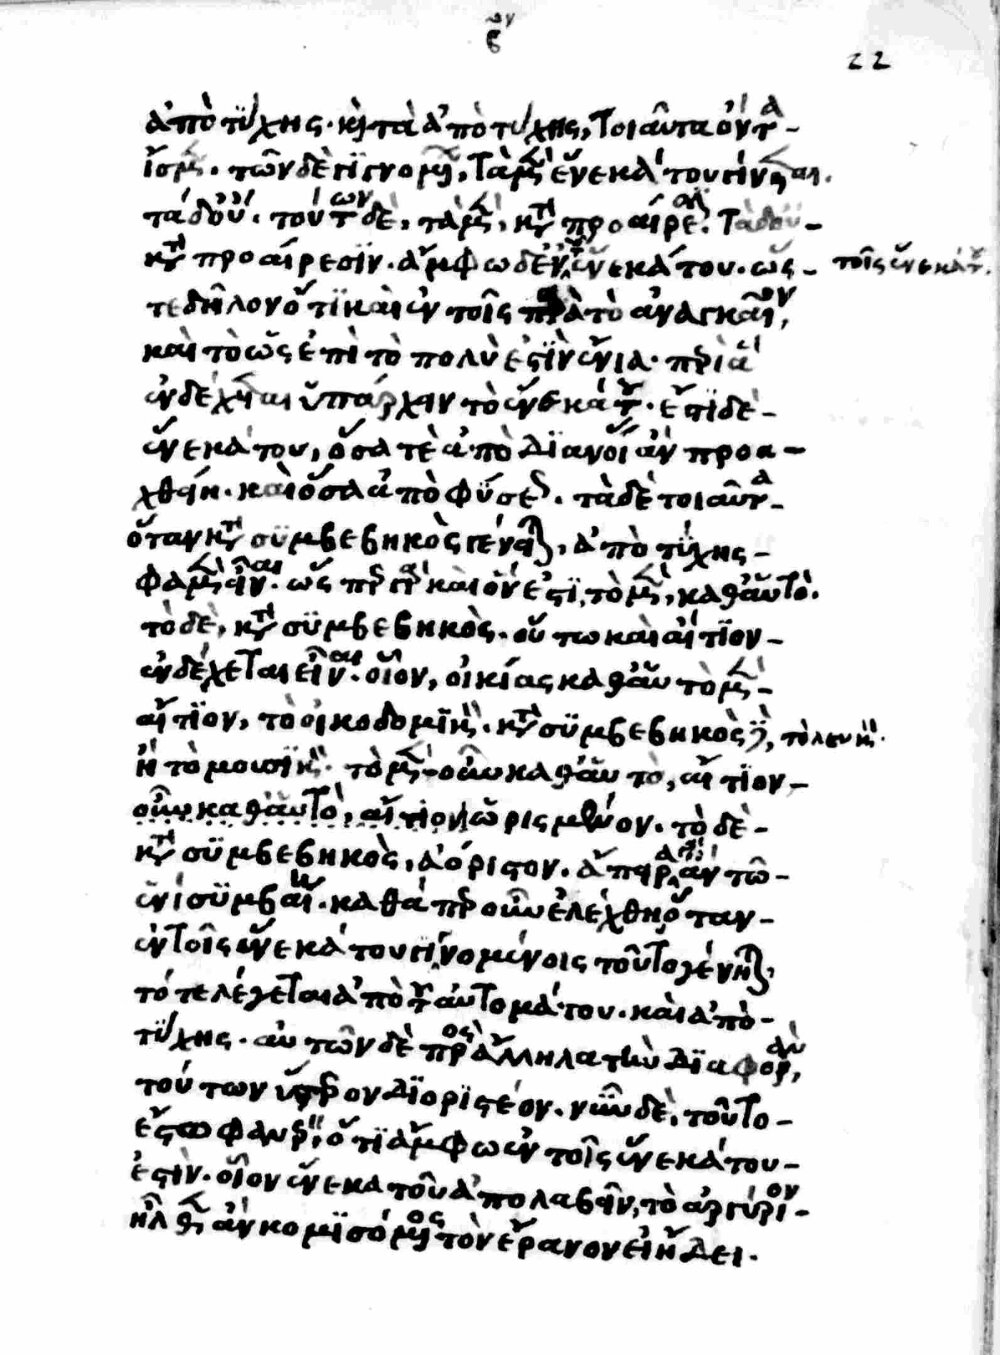 β ον
22
ἀπὸ τύχης· καὶ τὰ ἀπὸ τύχης, τοιαῦτα ὄντα
ἴσμεν. τῶν δὲ γινομένων, τὰ μὲν ἕνεκά του γίνεται.
τὰ δ' οὔ. τούτων δὲ, τὰ μὲν, κατὰ προαίρεσιν. τὰ δ' οὐ
κατὰ προαίρεσιν. ἄμφω δ' ἐν τοῖς ἕνεκά του. ὥς
τοῖς ἕνεκά του.
τε δῆλον ὅτι καὶ ἐν τοῖς παρὰ τὸ ἀναγκαῖον,
καὶ τὸ ὡς ἐπὶ τὸ πολὺ ἐστὶν ἔνια· περὶ ἃ
ἐνδέχεται ὑπάρχειν τὸ ἕνεκά του. ἔστι δὲ
ἕνεκά του, ὅσα τὲ ἀπὸ διανοίας ἂν πρα
χθείη. καὶ ὅσα ἀπὸ φύσεως. τὰ δὲ τοιαῦτα
ὅταν κατὰ συμβεβηκὸς γένηται, ἀπὸ τύχης
φαμὲν εἶναι. ὥσπερ γὰρ καὶ ὄν ἐστι, τὸ μὲν, καθ' αὑτὸ.
τὸ δὲ, κατὰ συμβεβηκὸς. οὕτω καὶ αἴτιον
ἐνδέχεται εἶναι. οἷον, οἰκίας καθ' αὑτὸ μὲν
αἴτιον, τὸ οἰκοδομικὸν. κατὰ συμβεβηκὸς δὲ, τὸ λευκὸν.
ἢ τὸ μουσικὸν. τὸ μὲν οὖν καθ' αὑτὸ, αἴτιον
οὖν καθ' αὑτὸ, αἴτιον ὡρισμένον. τὸ δὲ
κατὰ συμβεβηκὸς, ἀόριστον. ἄπειρα γὰρ ἂν τῶ
ἑνὶ συμβαίη. καθάπερ οὖν ἐλέχθη ὅταν
ἐν τοῖς ἕνεκά του γινομένοις τοῦτο γένηται,
τότε λέγεται ἀπὸ ταυτομάτου. καὶ ἀπὸ
τύχης. αὐτῶν δὲ πρὸς ἄλληλα τὴν διαφορὰν,
τούτων ὕστερον διοριστέον. νῦν δὲ, τοῦτο
ἔστω φανερὸν, ὅτι ἄμφω ἐν τοῖς ἕνεκά του
ἐστὶν. οἷον ἕνεκα τοῦ ἀπολαβεῖν, τὸ ἀργύριον
ἦλθεν ἂν κομισόμενος τὸν ἔρανον εἰ ᾔδει.